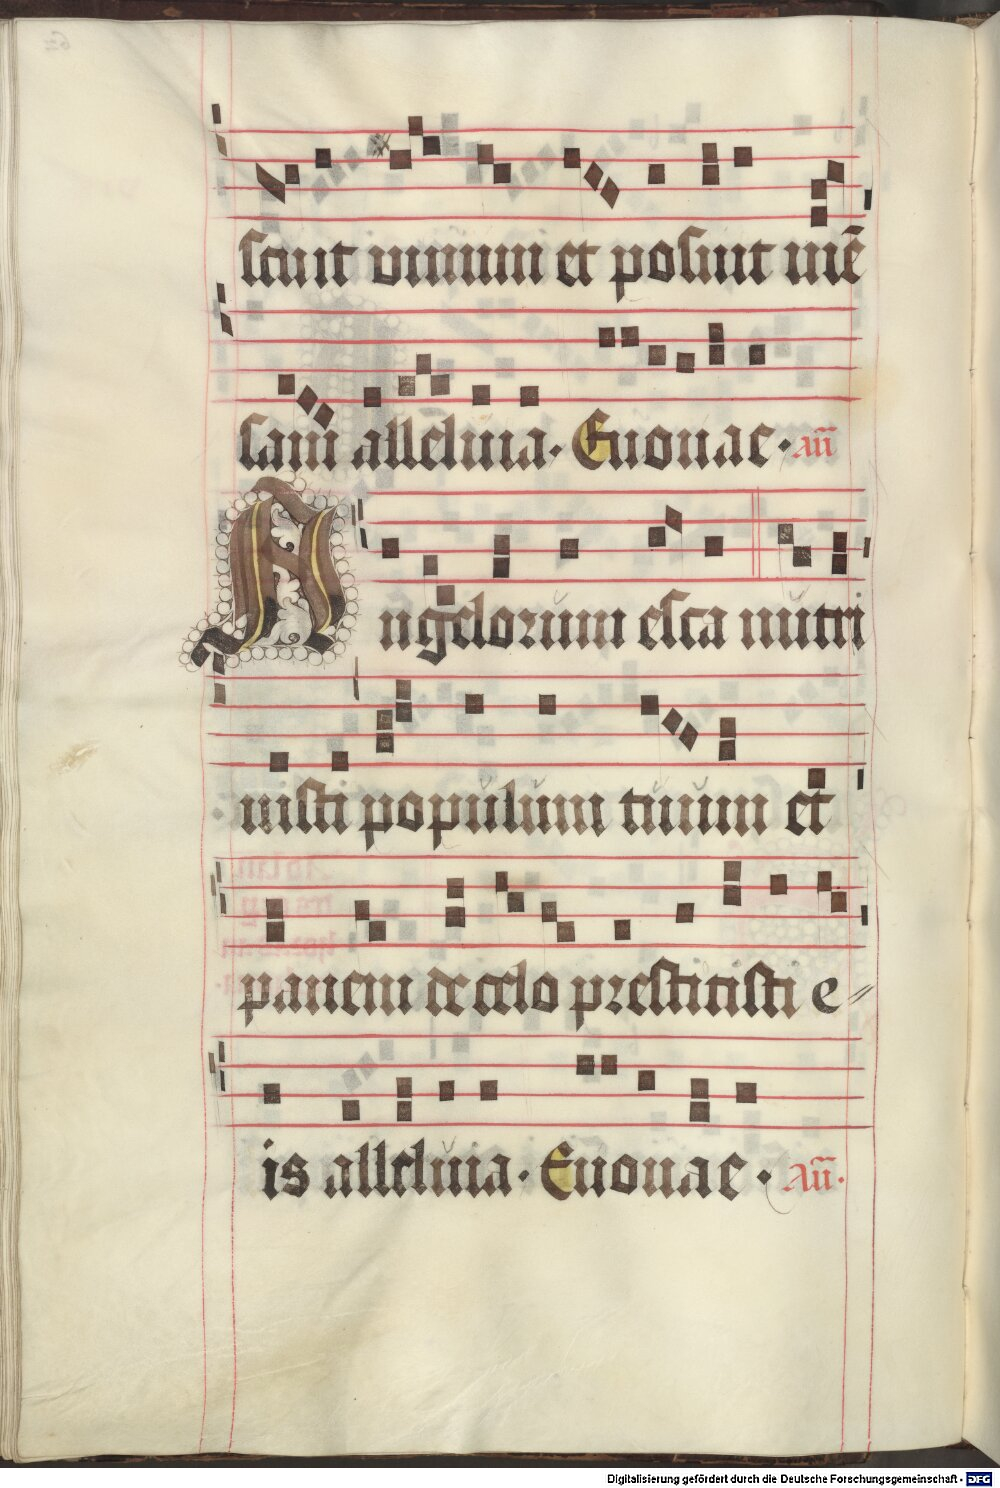 scuit vinum et posuit mē
sam alleluia. Euouae. añ
Angelorum esca nutri
uisti populum tuum et
panem de celo prestitisti e
is alleluia. Euouae. Añ.
Digitalisierung gefördert durch die Deutsche Forschungsgemeinschaft - DFG